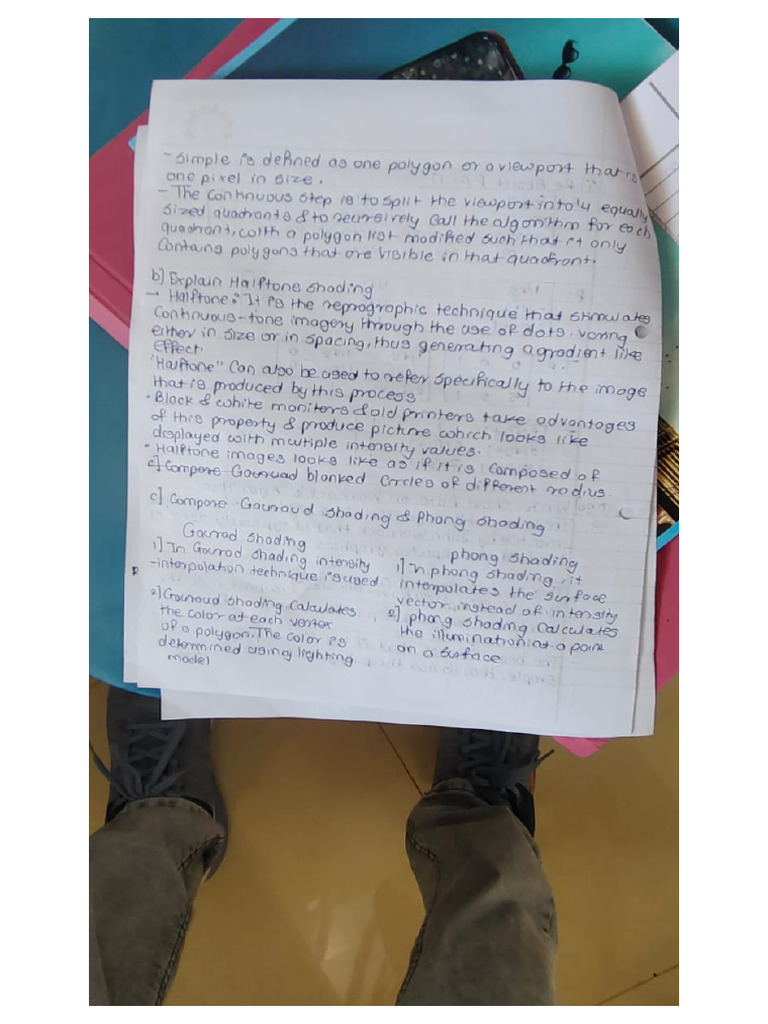 - Simple is defined as one polygon or a viewport that is
one pixel in size.
- The continuous step is to split the viewport into 4 equally
sized quadrants & to recursively call the algorithm for each
quadrant, with a polygon list modified such that it only
contains polygons that are visible in that quadrant.
b] Explain Halftone shading
→ Halftone: It is the reprographic technique that stimulates
continuous-tone imagery through the use of dots. varing
either in size or in spacing, thus generating a gradient like
effect.
"Halftone" can also be used to refer specifically to the image
that is produced by this process
- Black & white monitors & old printers take advantages
of this property & produce picture which looks like
displayed with multiple intensity values.
- Halftone images looks like as if it is composed of
c] Compare Gouruad blanked circles of different radius.
c] Compare Gouroud shading & Phong shading
Gourad shading
1] In Gourod shading intensity
-interpolation technique is used
2] Gouroud shading calculates
the color at each vertex
of a polygon. The color is
determined using lighting
model
phong shading
1] In phong shading, it
interpolates the surface
vector instead of intensity
2] phong shading calculates
the illumination at a point
on a surface